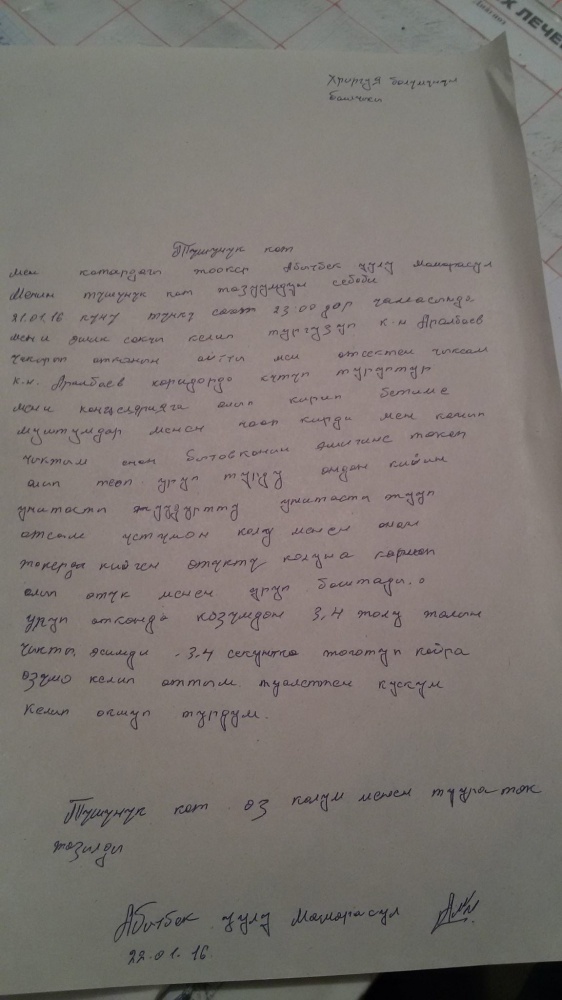 Х ЛЕЧЕ
болумунун
башчысы
Тушунук кат
мен катардагы жоокер Абытбек уулу Маморасул
Менин тушунук кат жазуумдун себеби
21.01.16 куну тунку саат 23:00 дор чамасында
мени дник сокчи келип тургузуп к.н Аралбаев
чокорып атканын айтты мен отсектен чыксам
к.н. Аралбаев коридордо кутуп туруптур
мени канцелярияга алып кирип бетиме
муштумдар менен кирди мен качып
чыктым анан бытовканын токоп
алып тееп уруп туруу андан кийин
унитазты жуудуртту унитазты жууп
отсам устумон колу менен анан
токерды кийген отукту колуна кармап
алып отук менен уруп баштады.
уруп отканда козумдон 3,4 жолу жалын
чыкты, эсимди .3.4 секунтка жоготуп кайра
озумо келип аттым туалеттен кускум
келип окшуп турдум.
Тушунук кат оз колум менен туура ток
жазылды
Абытбек уулу Маморасул
22.01.16